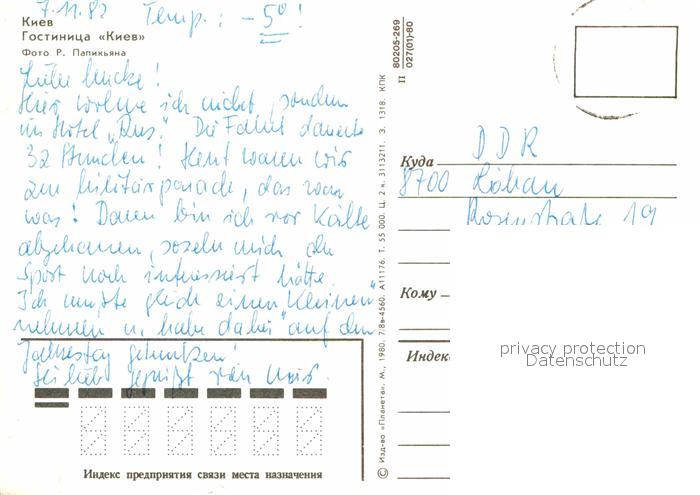 7.11.82 Temp.: -5° !
Киев
Гостиница «Киев»
Фото Р. Папикьяна
Hier wohne ich nicht, sondern
im Hotel „Rus". Die Fahrt dauerte
32 Stunden! Heut waren wir
zur Militärparade, das war
was! Dann bin ich vor Kälte
abgehauen, sosehr mich der
Sport noch interessiert hätte.
Ich mußte gleich einen „Kleinen"
nehmen u. habe dabei auf den
Jahrestag getrunken!
Sei lieb gegrüßt von
Индекс предприятия связи места назначения
© Изд-во «Планета». М., 1980. 7/8в-4560. А11176. Т. 55 000. Ц. 2 к. 3113211. З. 1318. КПК
П 80205-269
027(01)-80
Куда DDR
8700 Löbau
Rosenstraße 19
Кому
Индекс
privacy protection
Datenschutz